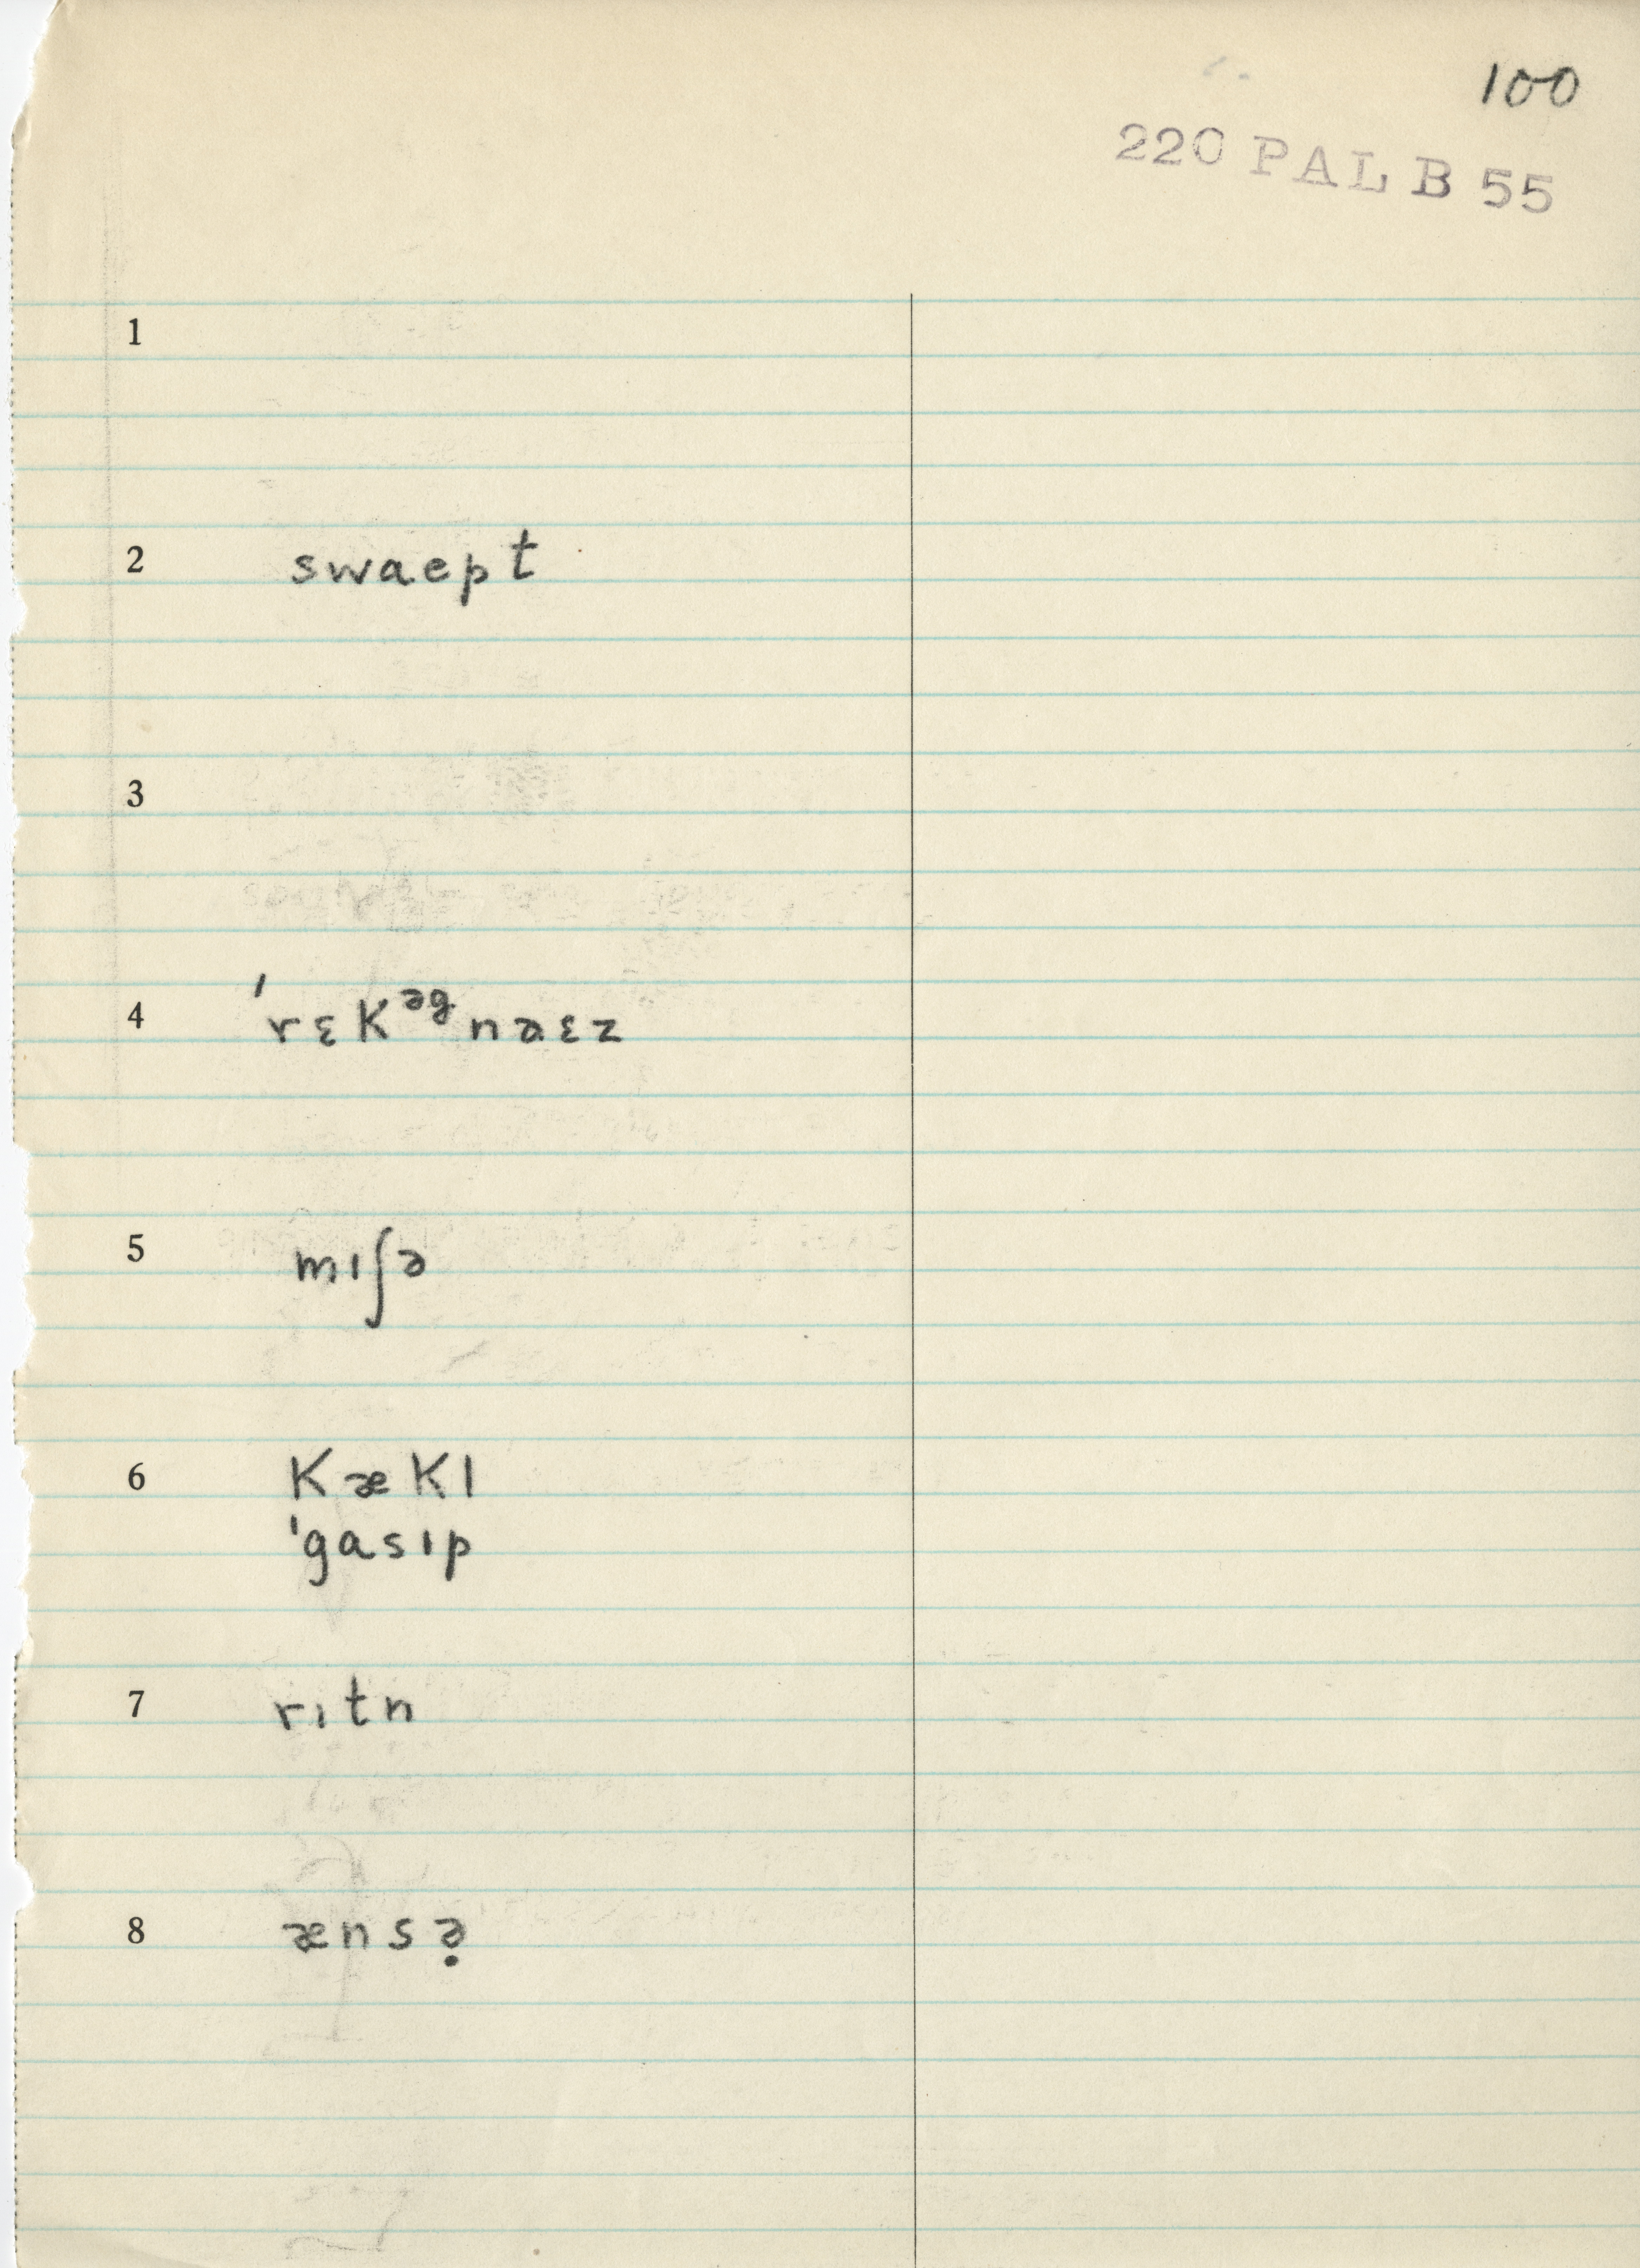 100
220 PAL B 55
1
2 swaept
3
4 'rɛK^əg naɛz
5 mıʃə
6 KæKl
'gasıp
7 rıtn
8 ænsə̣